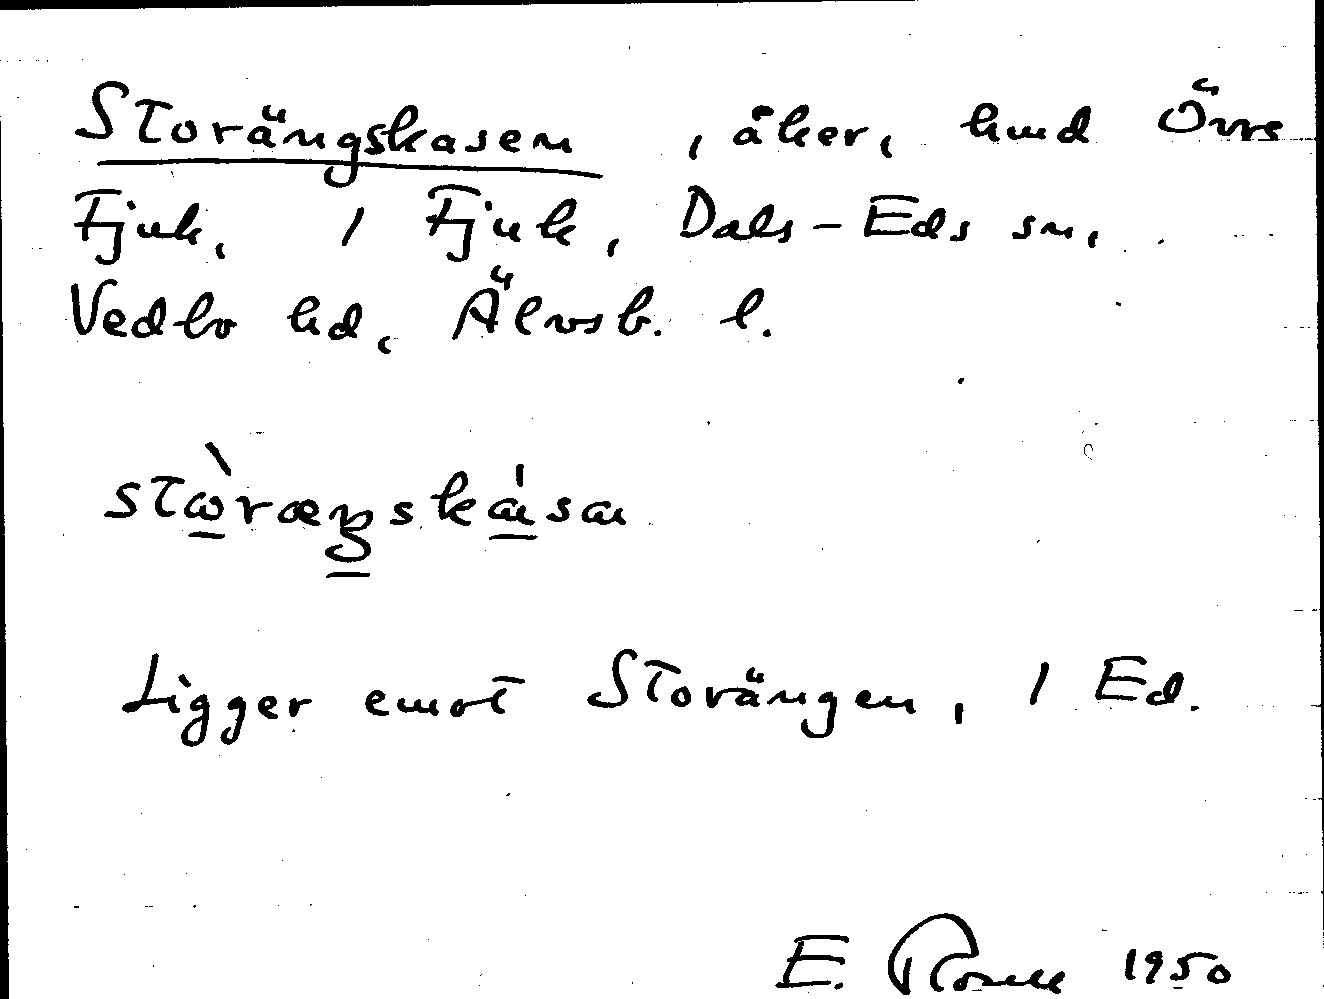 Storängskasen, åker, hmd Övre
Fjuk, 1 Fjuk, Dals-Eds sn,
Vedbo hd, Älvsb. l.
Ligger emot Storängen, 1 Ed.
E. 1950